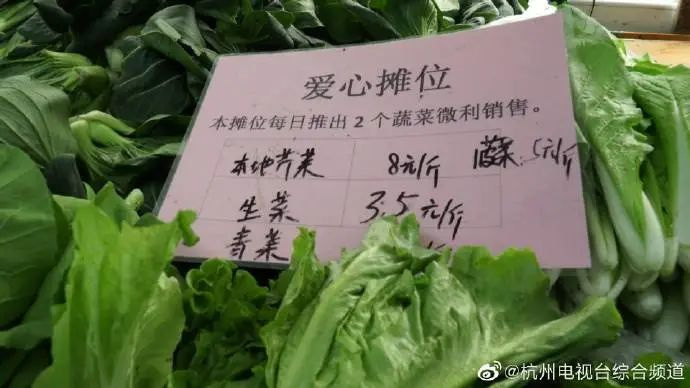 爱心摊位
本摊位每日推出2个蔬菜微利销售。
本地芹菜 8元/斤 菠菜 5元/斤
生菜 3.5元/斤
青菜 /斤
@杭州电视台综合频道